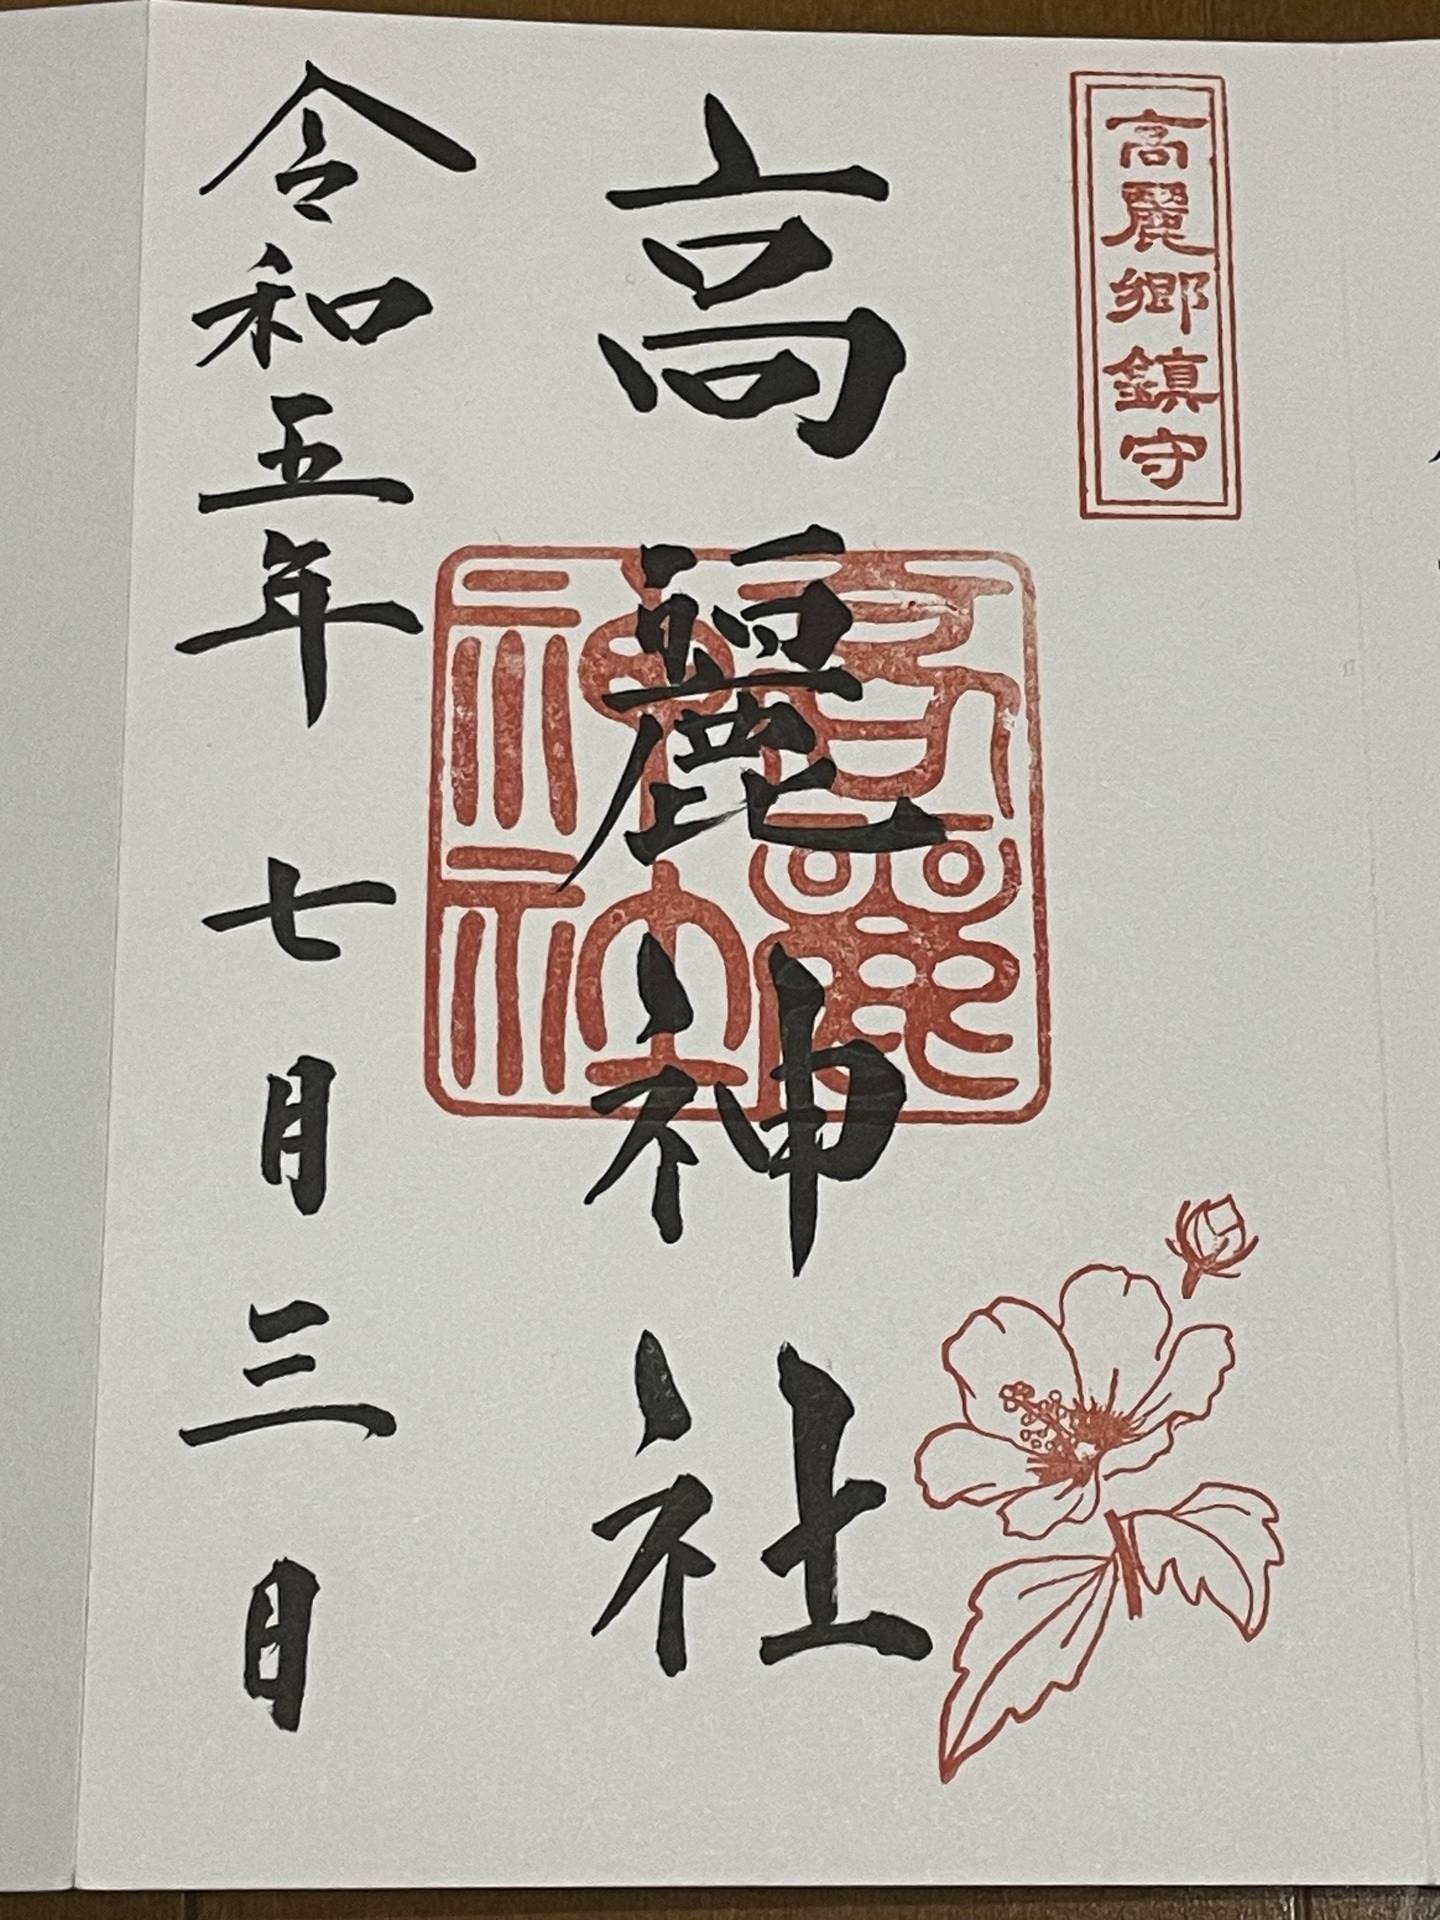 高麗郷鎮守
高麗神社
高麗神社
令和五年七月三日